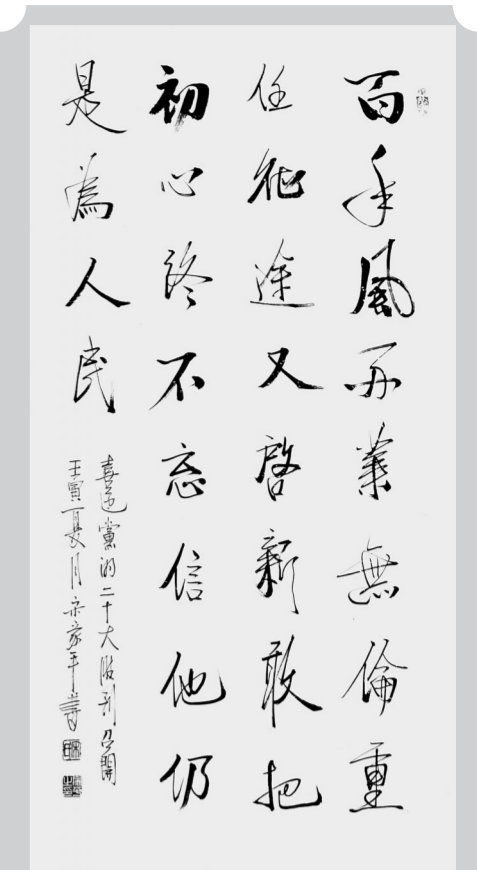 百年風雨業無倫重
任征途又啓新敢把
初心終不忘信他仍
是為人民
喜迎黨的二十大勝利召開
壬寅夏月宋家平書